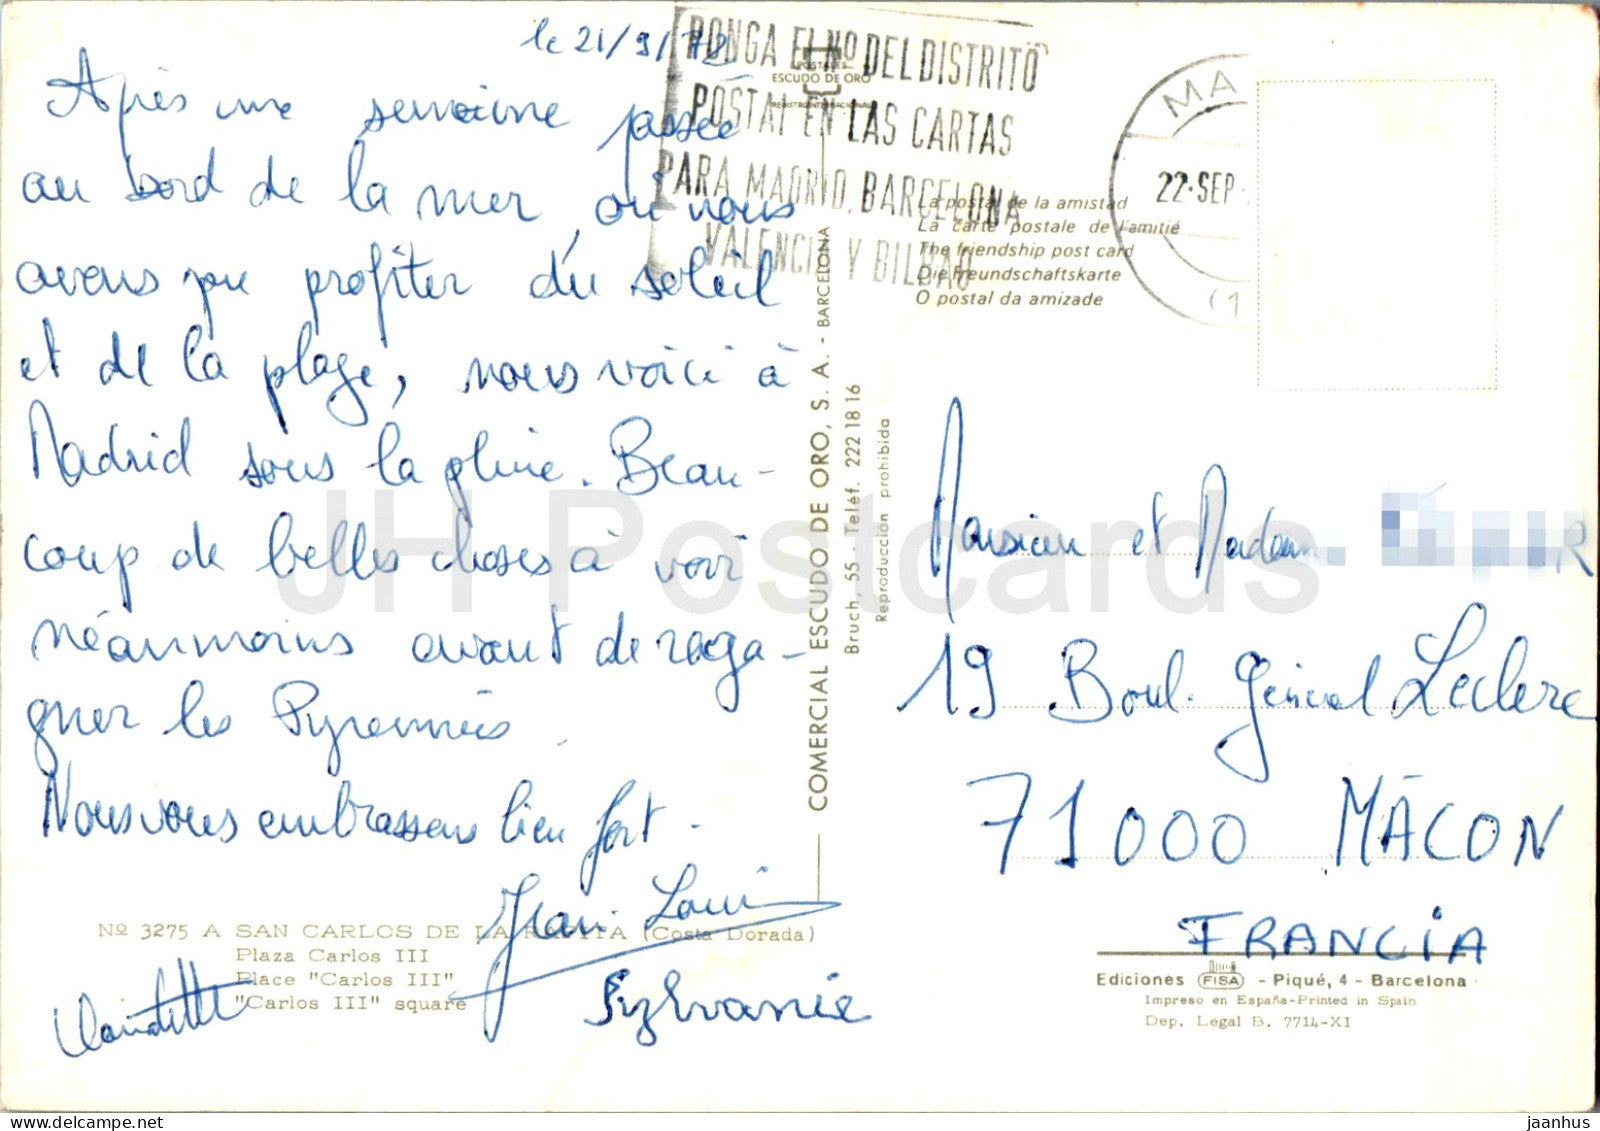 le 21/9/72
Après une semaine passée
au bord de la mer, où nous
avons pu profiter du soleil
et de la plage, nous voici à
Madrid sous la pluie. Beau-
coup de belles choses à voir
néanmoins avant de rega-
gner les Pyrennées.
Nous vous embrassons bien fort.
Jean Louis
Claudette
Sylvanie
Nº 3275 A SAN CARLOS DE LA RAPITA (Costa Dorada)
Plaza Carlos III
Place "Carlos III"
"Carlos III" square
PONGA EL Nº DEL DISTRITO
POSTAL EN LAS CARTAS
PARA MADRID, BARCELONA
VALENCIA Y BILBAO
POSTALES
ESCUDO DE ORO
REGISTRO INTERNACIONAL
MA
22·SEP
(1
La postal de la amistad
La carte postale de l'amitié
The friendship post card
Die Freundschaftskarte
O postal da amizade
COMERCIAL ESCUDO DE ORO, S. A. - BARCELONA
Bruch, 55 - Teléf. 222 18 16
Reproducción prohibida
Monsieur et Madame
19 Boul. Général Leclerc
71000 MÂCON
FRANCIA
Ediciones FISA - Piqué, 4 - Barcelona
Impreso en España-Printed in Spain
Dep. Legal B. 7714-XI
JH Postcards
jaanhus @ delcampe.net